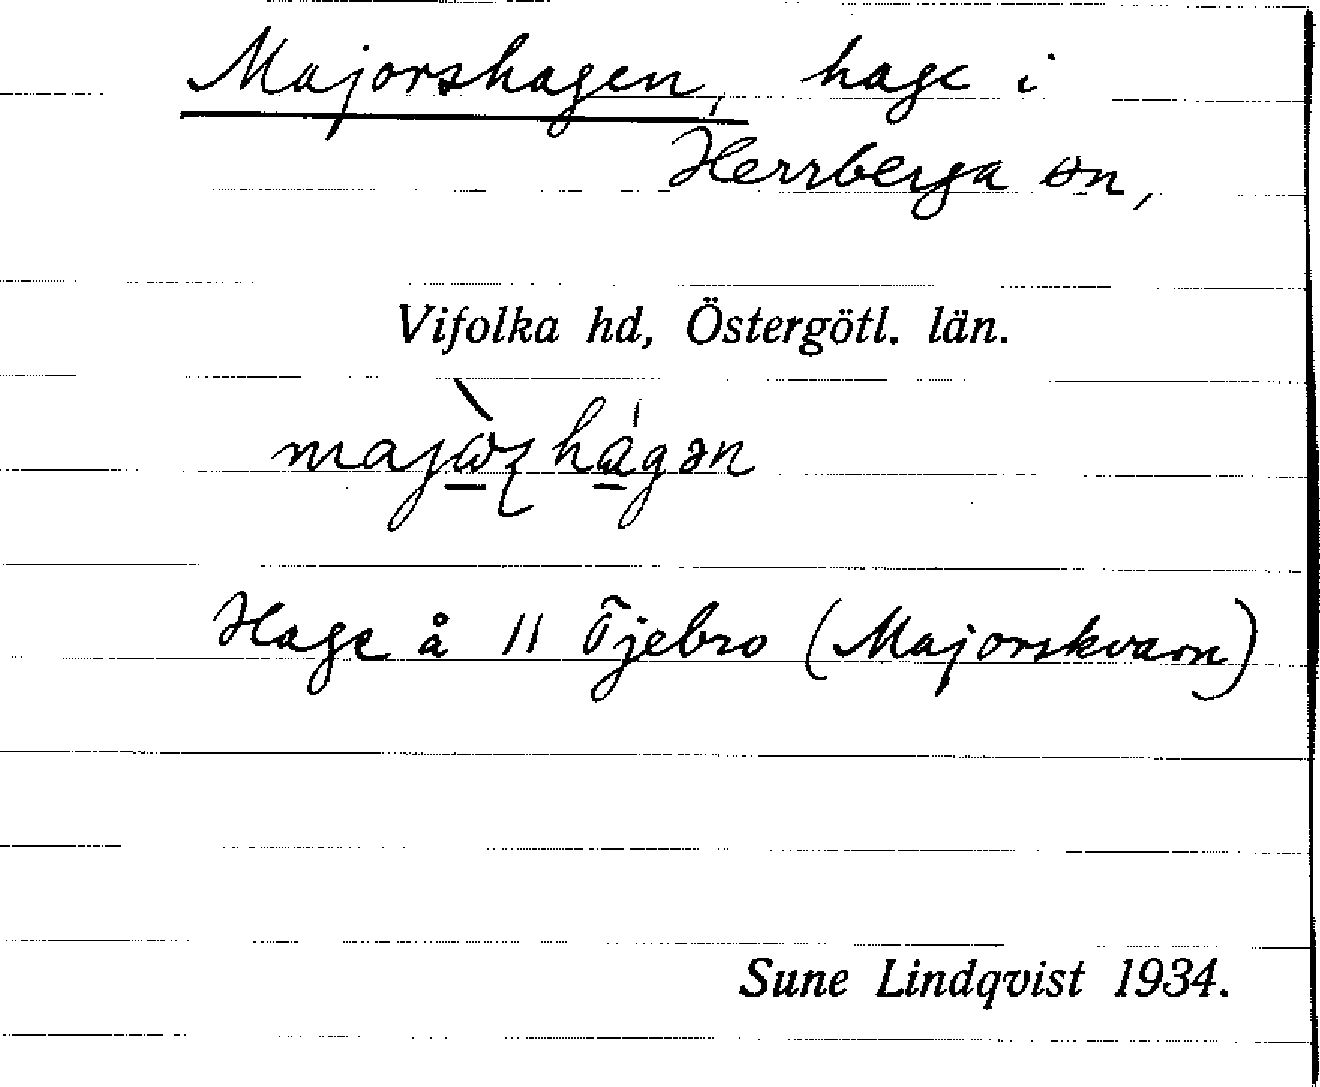 Majorshagen, hage i
Herrberga sn,
Vifolka hd, Östergötl. län.
Hage å 11 Öjebro (Majorskvarn)
Sune Lindqvist 1934.